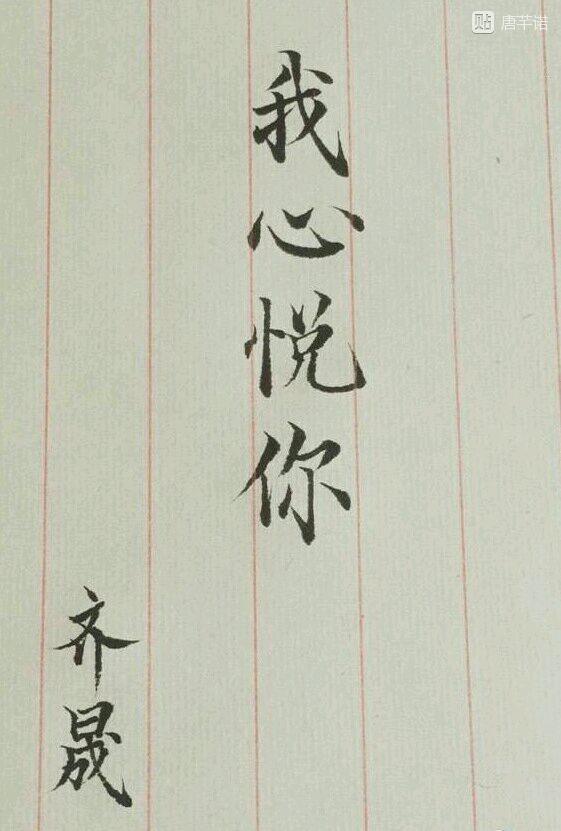 我心悦你
齐晟
贴 唐芊诺